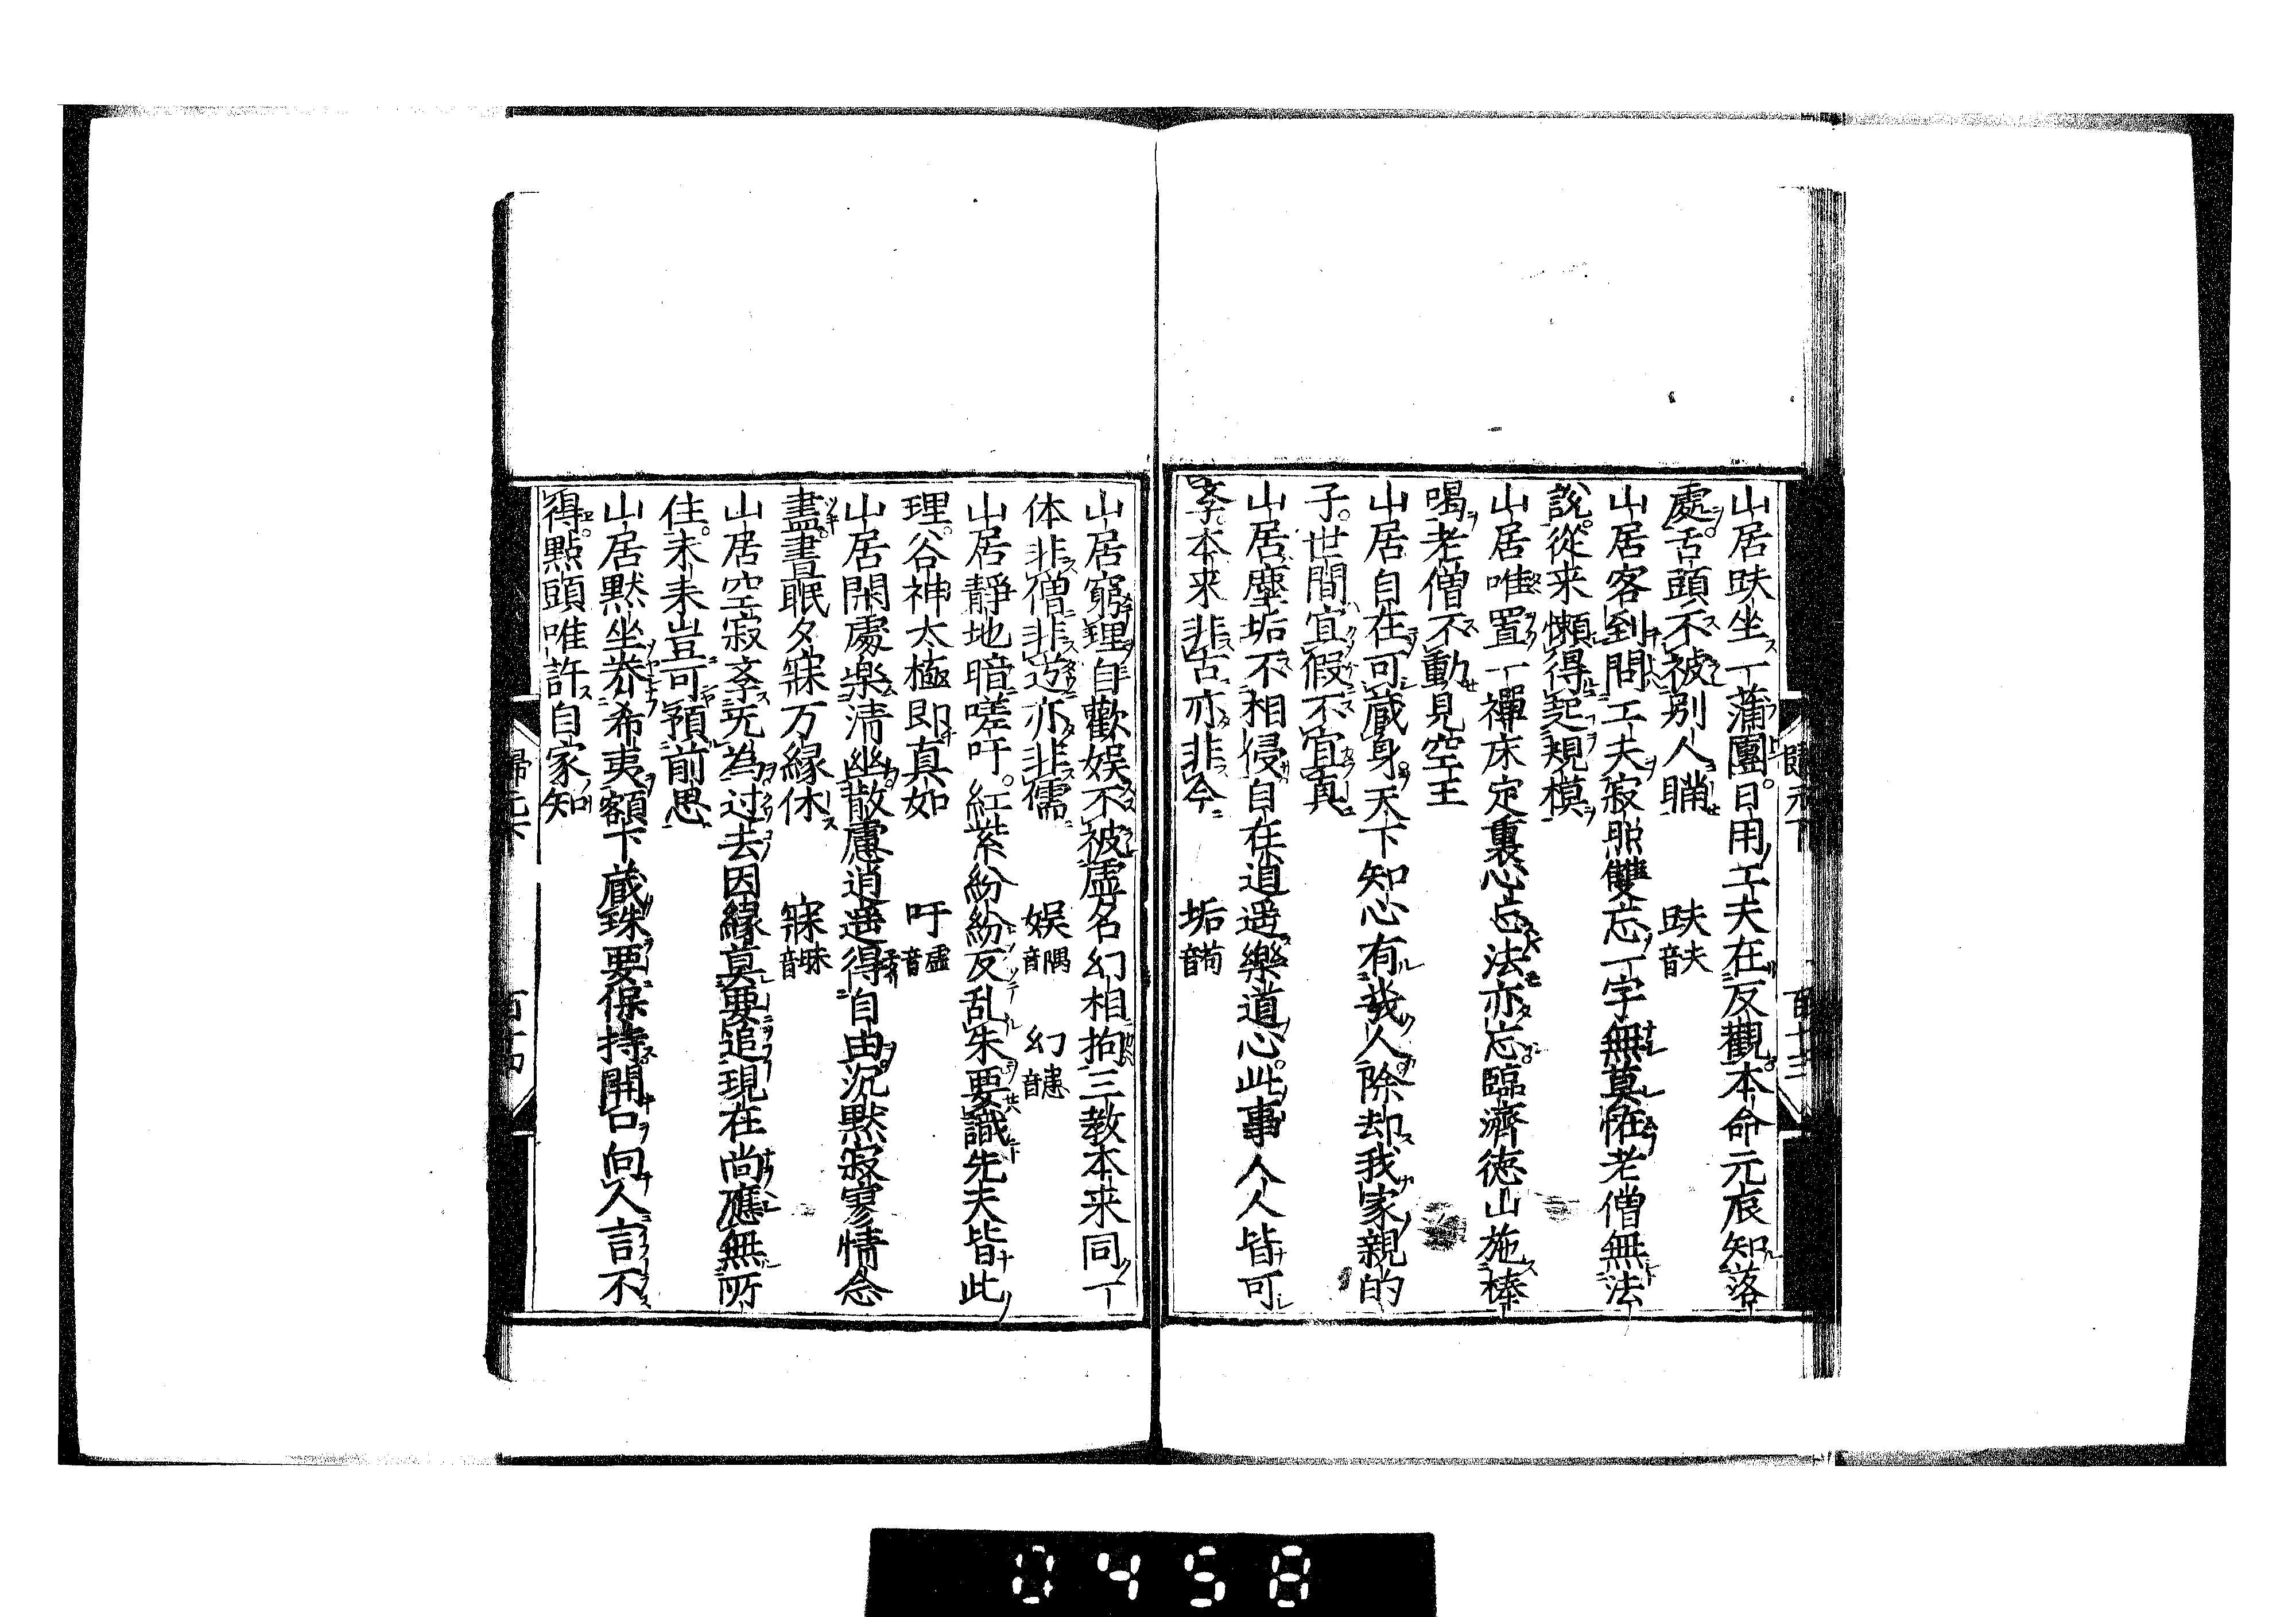 山居趺坐一蒲團。日用工夫在反觀本命元辰知落
處。舌頭不被別人瞞　趺音夫
山居客到問工夫寂照雙忘一字無莫怪老僧無法
說。從来懶得起規模
山居唯置一禪床定裏心忘法亦忘。臨濟徳山施棒
喝老僧不動見空王
山居自在可蔵身。天下知心有幾人除却我家親的
子。世間宜假不宜真
山居塵垢不相侵自在逍遥樂道心。此事人人皆可
李。本来非古亦非今　垢音苟
山居窮理自歡娯不被虛名幻相拘三教本来同一
体非僧非道亦非儒　娯音隅　幻音患
山居靜地暗嗟吁。紅紫紛紛反乱朱要識先天皆此
理。谷神太極即真如　吁音虛
山居閑處楽清幽散慮逍遥得自由。沉黙寂寥情念
盡。晝眠夕寐万緣休　寐音昧
山居空寂夲无為过去因緣莫要追現在尚應無所
住。未来豈可預前思
山居黙坐養希夷額下蔵珠要保持開口向人言不
得。點頭唯許自家知
歸元下
百十三
百十四
0458